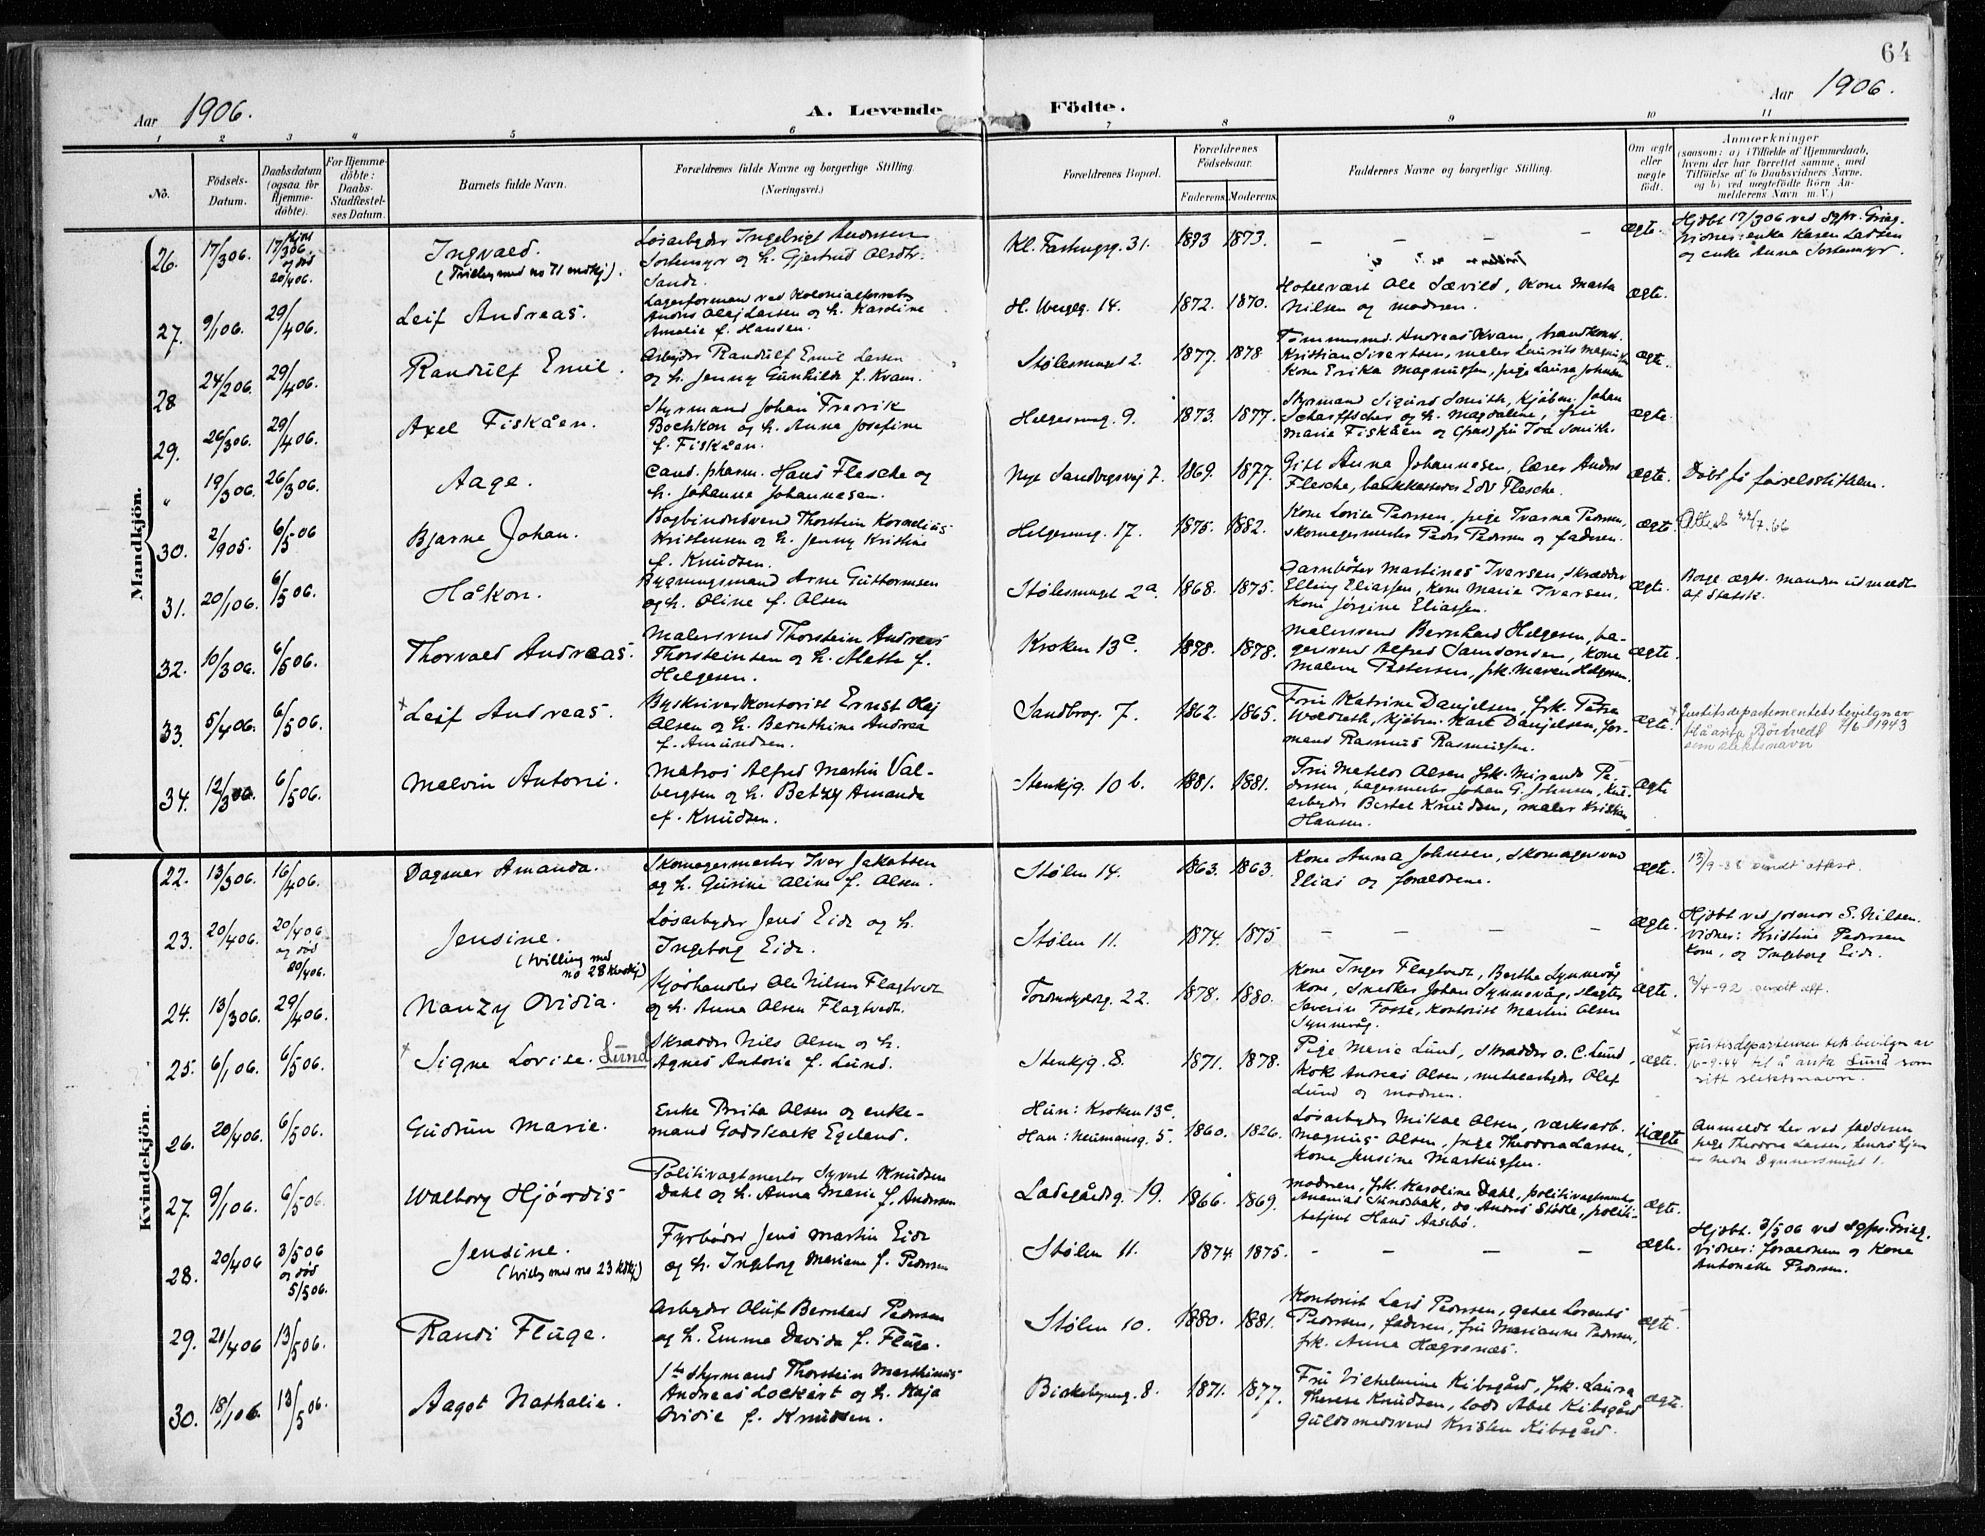 64
Aar 1906.
A. Levende Födte.
Aar 1906.
1 2 3 4 5 6 7 8 9 10 11
No.
Födsels-
Datum.
Daabsdatum
(ogsaa for
Hjemme-
döbte).
For Hjemme-
döbte:
Daabs-
Stadfæstel-
ses Datum.
Barnets fulde Navn.
Forældrenes fulde Navne og borgerlige Stilling.
(Næringsvei.)
Forældrenes Bopæl.
Forældrenes
Födselsaar.
Faderens. Moderens.
Faddernes Navne og borgerlige Stilling.
Om ægte
eller
uægte
födt.
Anmærkninger
(saasom: a) i Tilfælde af Hjemmedaab,
hvem der har forrettet samme, med
Tilföielse af to Daabsvidners Navne,
og b) ved uægtefödte Börn An-
melderens Navn m. V.)
Mandkjön.
26. 17/306. 17/306 og död 20/406.
Ingvald.
(Tvilling med no 71 )
Løsarbeider Ingebrigt Andersen
Sortemyr og h. Gjertrud Olsdtr.
Sande.
Kl. 31. 1873 1873. – – – – ægte.
Hjdbt 17/306 ved sgpr. Grieg.
Vidner: enke Karen Larsen
og enke Anna Sortemyr.
27. 9/106. 29/406.
Leif Andreas.
Lagerformand ved Kolonialforretn.
Anders Olaj Larsen og h. Karoline
Amalie f. Hansen.
H. Wergelg. 14. 1872. 1870.
Hotelvært Ole Sævild, Kone Marta
Nilsen og modren.
ægte.
28 24/206. 29/406.
Randulf Emil.
Arbeider Randulf Emil Larsen
og h. Jenny Gunhilde f. Kvam.
Stølesmuget 2. 1877. 1878
Tømmermd. Andreas Kvam, brandkonst.
Kristian Sivertsen, maler Laurits Magnussen
Kone Erika Magnussen, pige Laura Johnsen
ægte.
29. 26/306. 29/406.
Axel Fiskåen.
Styrmand Johan Fredrik
Bochkon og h. Anna Josefine
f. Fiskåen.
Helgesmug. 9. 1873. 1877.
Styrmand Sigurd Smith, Kjøbm. Johan
og h. Magdaline, fru
Marie Fiskåen og fru Toa Smith.
ægte.
" 19/306. 26/306.
Aage.
Cand. pharm. Hans Flesche og
h. Johanna Johannesen.
Nye Sandbrogsvej 7. 1869. 1877.
Gitl Anna Johannesen, lærer Anders
Flesche, bankkasserer Edv Flesche.
ægte.
Døbt på fødselsstiftelsen.
30. 2/905. 6/506
Bjarne Johan.
Bogbindersvend Thorstein Kornelius
Kristensen og h. Jenny Kristine
f. Knudsen.
Helgesmug. 17. 1875. 1882.
Kone Lovise Pedersen, pige Ivarna Pedersen,
skomagermester Peder Pedersen og faderen.
ægte.
Attest 22/7.66
31. 20/106. 6/506.
Håkon.
Bygningsmand Arne Guttormsen
og h. Oline f. Olsen
Stølesmuget 2a. 1868. 1875.
Garnbøter Martines Iversen, skrædder
Elling Eliassen, Kone Marie Iversen.
Kone Jørgine Eliassen.
ægte.
Borgl. ægts. manden udmeldt
af Statsk.
32. 10/306. 6/506.
Thorvald Andreas.
Malersvend Thorstein Andreas
Thorsteinsen og h. Mette f.
Helgesen.
Kroken 13c. 1878. 1878.
Malersvend Bernhard Helgesen, ba-
gersvend Alfred Samsonsen, Kone
Malene Pettersen, frk. Maren Helgesen.
ægte.
33. 5/406. 6/506.
× Leif Andreas.
Byskriverkontorist Ernst Olaj
Olsen og h. Bernthine Andrea
f. Amundsen.
Sandbrog. 7. 1862. 1865.
Fru Katrine Danjelsen, frk. Petra
Woldseth, Kjøbm. Karl Danjelsen, for-
mand Rasmus Rasmussen.
ægte.
× Justitsdepartementets bevilgn av
7/6 1943
til å anta Börtvedt
som slektsnavn
34. 12/306. 6/506.
Malvin Antoni.
Matros Alfred Martin Val-
bergsen og h. Betzy Amanda
f. Knudsen.
Stenkjg. 10 b. 1881. 1881.
Fru Matilde Olsen frk. Miranda Pe-
dersen, bagermester Johan G. Johnsen,
arbeider Bertel Knudsen, maler Kristian
Hansen.
ægte
Kvindekjön.
22. 13/306. 16/406.
Dagmar Amanda.
Skomagermester Iver Jakobsen
og h. Gurine Aline f. Olsen.
Stølen 14. 1863. 1863.
Kone Anna Johnsen, skomagersvend
Elias og forældrene.
ægte.
13/9-38 sendt attest.
23. 20/406. 20/406 og död 20/406.
Jensine.
(tvilling med
no 28 kvdkj)
Løsarbeider Jens Eide og h.
Ingeborg Eide.
Stølen 11. 1874. 1875 – – – –
ægte.
Hjdbt ved jormor S. Nilsen.
Vidner: Kristine Pedersen
Kone, og Ingeborg Eide.
24. 13/306. 29/406.
Nanzy Ovidia.
Kjørhandler Ole Nilsen Flagtvedt
og h. Anna Olsen Flagtvedt.
Tordenskjoldsg. 22. 1878. 1880.
Kone Inger Flagtvedt, Berthe Synnevåg
Kone, snedker Johan Synnevåg, slagter
Severin Fosse, Kontorist Martin Olsen
Synnevåg.
ægte.
2/4-92 sendt att.
25. 6/106. 6/506.
× Signe Lovise. Lund
Skrædder Nils Olsen og h.
Agnes Antonie f. Lund.
Stenkjg. 8. 1871. 1878.
Pige Marie Lund, skrædder O. C. Lund,
Kok Andreas Olsen, metalarbeider Olaf
Lund og modren.
ægte.
× Justisdepartementets bevilgn av
16-9-44 til å anta Lund som
sitt slektsnavn.
26. 20/406. 6/506.
Gudrun Marie.
Enke Brita Olsen og enke-
mand Godskalk Egeland.
Hun: Kroken 13c.
Han: Neumansg. 5. 1860. 1826.
Løsarbeider Mikal Olsen, værksarb.
Magnus Olsen, pige Theodora Larsen,
Kone Jensine Markussen.
uægte
Anmeldt her ved fadderen
pige Theodora Larsen,
27. 9/106. 6/506.
Walborg Hjördis
Politivagtmester Syvert Knudsen
Dahl og h. Anna Marie f. Andersen
Ladegårdsg. 19. 1866. 1869.
modren, frk. Karoline Dahl, politivagtmester
Ananias Skndsbak, do Anders Stölde, politi-
betjent Hans Aasebö.
ægte.
28. 20/406 3/506 og död 5/506.
Jensine.
(tvill. med no 23 kvkj)
Fyrbøder Jens Martin Eide
og h. Ingeborg Mariane f. Pedersen
Stølen 11. 1874. 1875. – – – –
ægte.
Hjdbt. 3/506 ved sgpr. Grieg.
Vidner: forældrene og Kone
Antonette Pedersen.
29. 21/406 13/506.
Randi Fluge.
Arbeider Oluf Bernhard Pedersen
og h. Emma Davida f. Fluge.
Stølen 10. 1880. 1881.
Kontorist Lars Pedersen, gesel Lorents
Pedersen, faderen, fru Marianne Pedersen,
frk. Anna Hægrenæs.
ægte.
30. 18/106 13/506.
Aagot Nathalie.
1ste styrmand Thorstein Marthinius
Andreas Lockert og h. Kaja
Ovidie f. Knudsen.
Birkebeinerg. 8. 1871. 1877.
Fru Vilhelmine Kibsgård, frk. Laura
Therese Knudsen, lods Abel Kibsgård
Guldsmedsvend Kristen Kibsgård.
ægte.